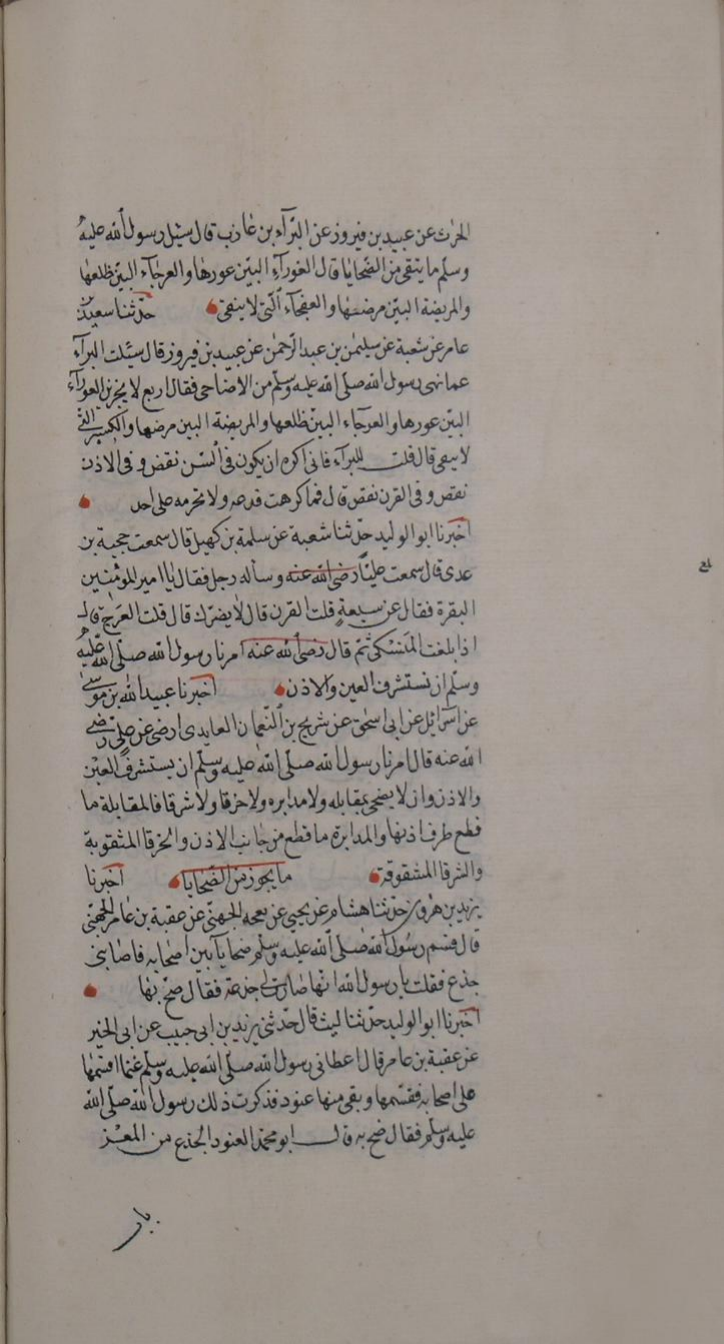 الحرث عن عبيد بن فيروز عن البرآء بن عازب قال سئل رسول الله عليه
وسلم ما يتقى من الضحايا قال العورآء البين عورها والعرجاء البين ظلعها
والمريضة البين مرضها والعجفآء التى لا ينقى حدثنا سعيد بن
عامر عن شعبة عن سليمن بن عبد الرحمن عن عبيد بن فيروز قال سئلت البرآء
عما نهى رسول الله صلى الله عليه وسلم من الاضاحى فقال اربع لا يجزين العورآء
البين عورها والعرجاء البين ظلعها والمريضة البين مرضها والكسير التى
لا ينقى قال قلت للبرآء فانى اكره ان يكون فى السن نقص وفى الاذن
نقص وفى القرن نقص قال فما كرهت فدعه ولا تحرمه على احد
اخبرنا ابو الوليد حدثنا شعبة عن سلمة بن كهيل قال سمعت حجية بن
عدى قال سمعت عليًا رضى الله عنه وساله رجل فقال يا امير المومنين
البقرة فقال عن سبعةٍ قلت القرن قال لا يضرك قال قلت العرج قال
اذا بلغت المنسك ثم قال رضى الله عنه امرنا رسول الله صلى الله عليه
وسلم ان نستشرف العين والاذن اخبرنا عبيد الله بن موسى
عن اسرائل عن ابى اسحق عن شريح بن النعمان العايدى ارضى عن على رضى
الله عنه قال امرنا رسول الله صلى الله عليه وسلم ان يستشرف العين
والاذن وان لا يضحى بمقابله ولا مدابره ولا خرقا ولا شرقا فالمقابلة ما
قطع طرف اذنها والمدابرة ما قطع من جانب الاذن والخرقا المثقوبة
والشرقا المشقوقة ما يجوز من الضحايا اخبرنا
يزيد بن هرون حدثنا هشام عن يحيى عن بعجه الجهنى عن عقبة بن عامر الجهنى
قال قسم رسول الله صلى الله عليه وسلم ضحايا بين اصحابه فاصابنى
جذع فقلت يا رسول الله انها صارت لى جذعة فقال ضح بها
اخبرنا ابو الوليد حدثنا ليث قال حدثنى يزيد بن ابى حبيب عن ابى الخير
عن عقبة بن عامر قال اعطانى رسول الله صلى الله عليه وسلم غنما اقسمها
على اصحابه فقسمها وبقى منها عتود فذكرت ذلك رسول الله صلى الله
عليه وسلم فقال ضح به قال ابو محمد العتود الجذع من المعز
باب